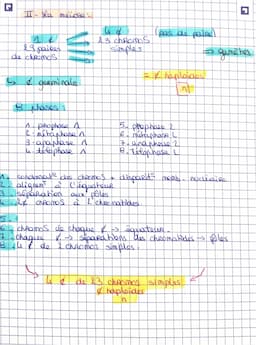 II - La meïose :
4 ¢ (pas de paire)
1 ¢ 23 chromoS
23 paires simples
de chromoS => gamètes
↳ ¢ germinale = ¢ haploïdes
n
8 phases :
1. prophase 1 5. prophase 2
2. métaphase 1 6. métaphase 2
3. anaphase 1 7. anaphase 2
4. télophase 1 8. télophase 2
1. condensat° des chromoS + disparit° memb. nucléaire
2. alignent à l'équateur
3. séparation aux pôles
4. 2¢ chromoS à 2 chromatides
5.
6. chromoS de chaque ¢ -> équateur.
7. chaque ¢ -> séparations des chromatides -> pôles
8. 4 ¢ de chromoS simples
4 ¢ de 23 chromos simples
¢ haploïdes
n